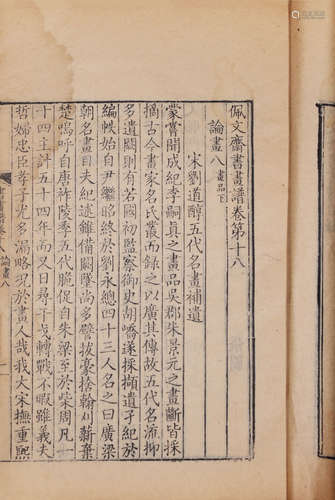 佩文齋書畫譜卷第十八
論畫八 畫品下
宋劉道醇五代名畫補遺
蒙嘗開成紀李嗣真之畫品吳郡朱景元之畫斷皆採
摭古今書家名氏叢而錄之以廣其傳故五代名流抑
多遺闕則有若國初監察御史胡嶠遂採擷遺子紀於
編帙始自尹繼昭終於劉永總四十三人名之曰廣梁
朝名畫目夫紀述雖備闕墜尚多譬拔豪捨翰刈薪棄
楚嗚呼自唐祚陵季五代脆促自朱梁至於柴周凡
十四主計五十四年而又日尋干戈轉戰不暇雖義夫
哲婦忠臣孝子尤多漏略況於畫人哉我大宋撫重熙
論畫八